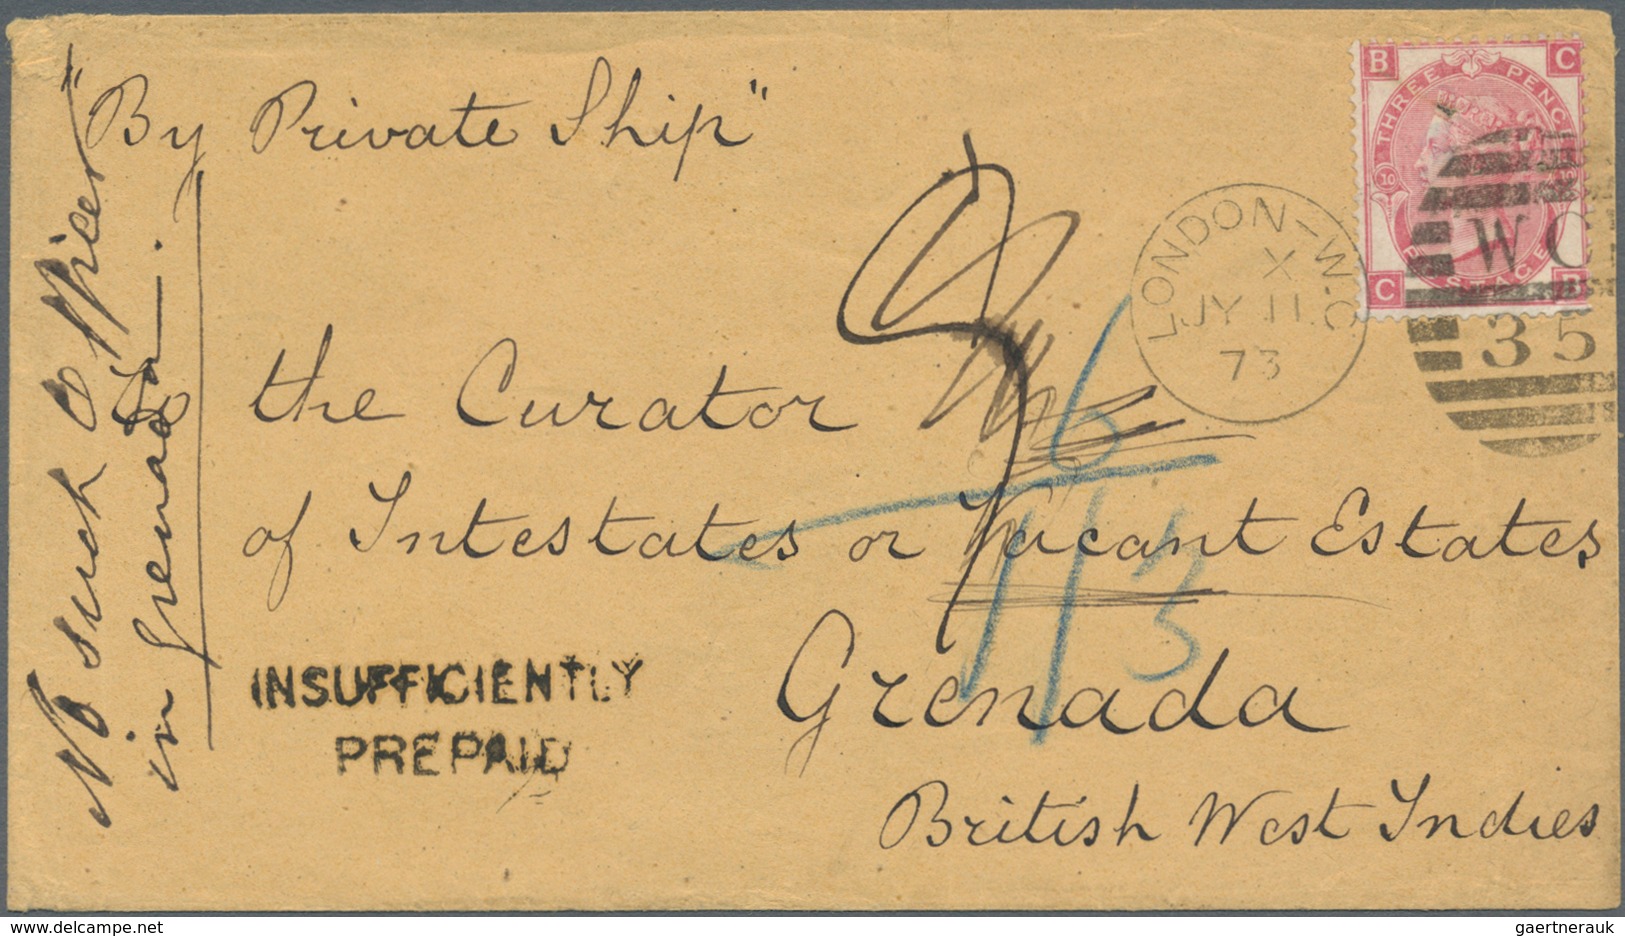 "By Private Ship"
To
the Curator
of Intestates or Vacant Estates,
Grenada
British West Indies
No such Officer
in Grenada.
INSUFFICIENTLY
PREPAID
LONDON-W.C
X
JY 11
73
B C
THREE PENCE
10 10
POSTAGE
C B
WC
35
6
1/3
gaertnerauk